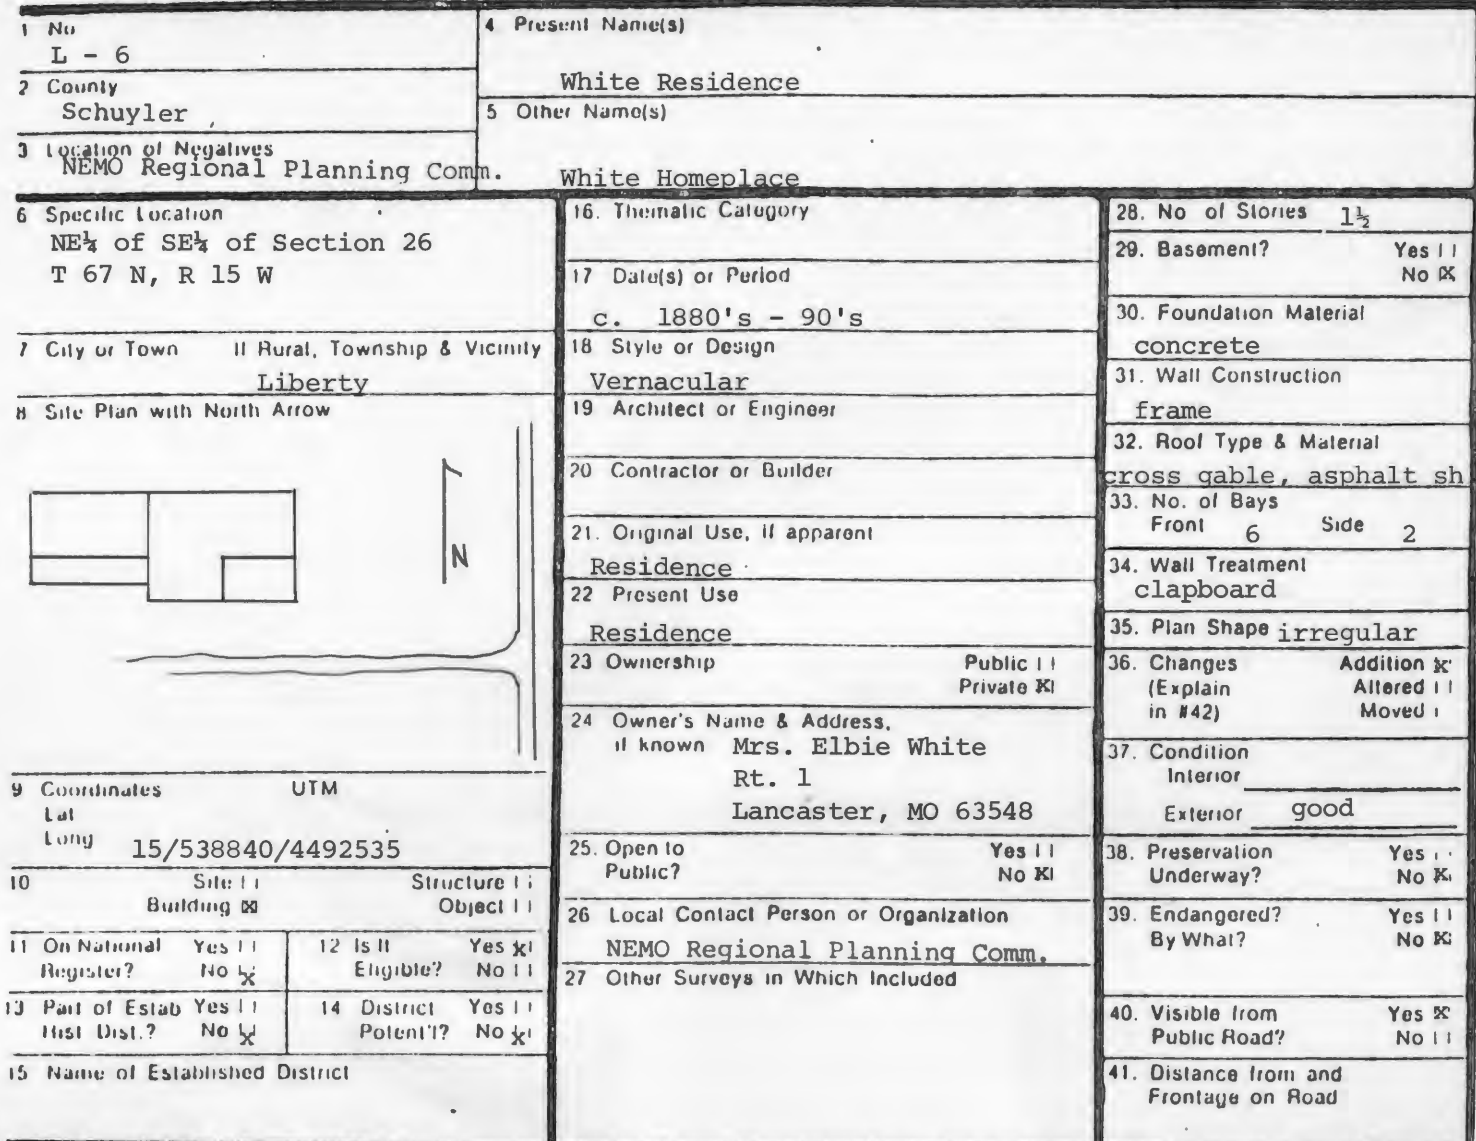 1 No
L - 6
2 County
Schuyler
3 Location of Negatives
NEMO Regional Planning Comm.
4 Present Name(s)
White Residence
5 Other Name(s)
White Homeplace
6 Specific Location
NE¼ of SE¼ of Section 26
T 67 N, R 15 W
7 City or Town If Rural, Township & Vicinity
Liberty
8 Site Plan with North Arrow
N
9 Coordinates UTM
Lat
Long
15/538840/4492535
10 Site Structure
Building X Object
11 On National Yes
Register? No X
12 Is It Yes X
Eligible? No
13 Part of Estab Yes
Hist Dist.? No X
14 District Yes
Potent'l? No X
15 Name of Established District
16. Thematic Category
17 Date(s) or Period
c. 1880's - 90's
18 Style or Design
Vernacular
19 Architect or Engineer
20 Contractor or Builder
21. Original Use, if apparent
Residence
22 Present Use
Residence
23 Ownership Public
Private X
24 Owner's Name & Address,
if known Mrs. Elbie White
Rt. 1
Lancaster, MO 63548
25. Open to Yes
Public? No X
26 Local Contact Person or Organization
NEMO Regional Planning Comm.
27 Other Surveys in Which Included
28. No of Stories 1½
29. Basement? Yes
No X
30. Foundation Material
concrete
31. Wall Construction
frame
32. Roof Type & Material
cross gable, asphalt sh
33. No. of Bays
Front 6 Side 2
34. Wall Treatment
clapboard
35. Plan Shape irregular
36. Changes Addition X
(Explain Altered
in #42) Moved
37. Condition
Interior
Exterior good
38. Preservation Yes
Underway? No X
39. Endangered? Yes
By What? No X
40. Visible from Yes X
Public Road? No
41. Distance from and
Frontage on Road